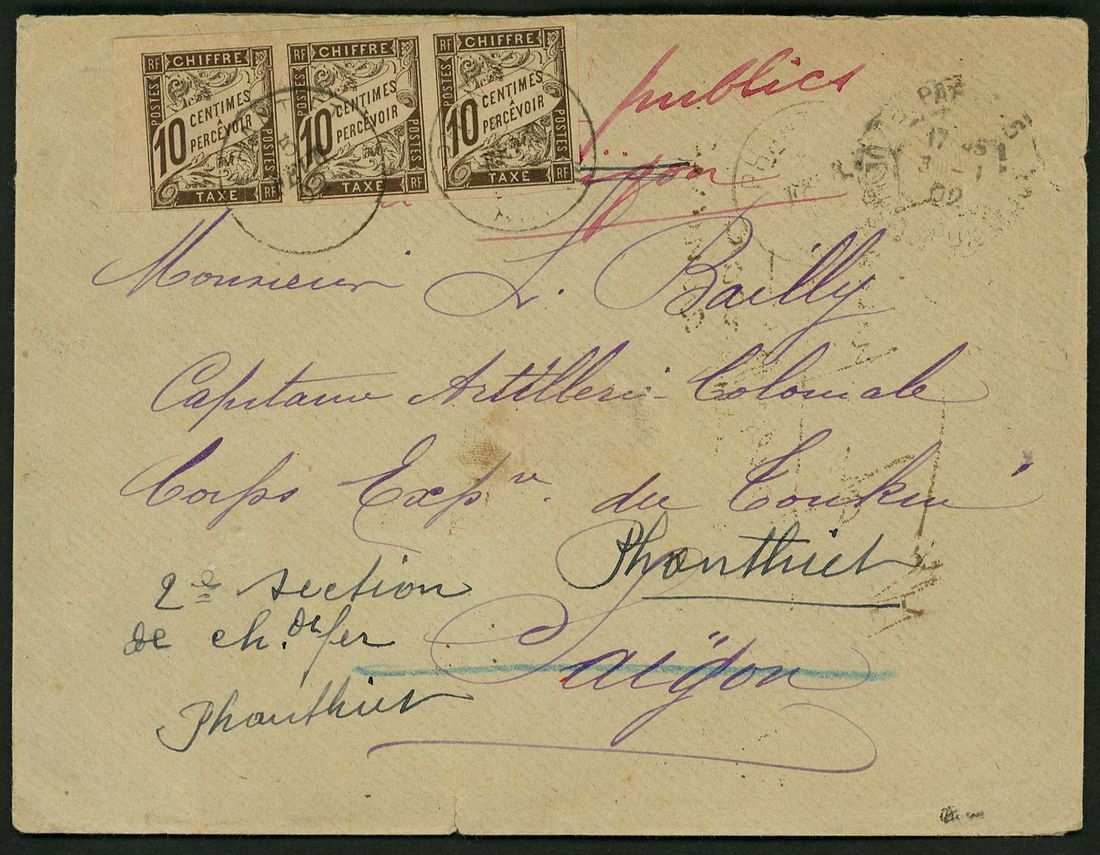 RF CHIFFRE RF CHIFFRE RF CHIFFRE
POSTES 10 CENTIMES À PERCEVOIR POSTES
POSTES 10 CENTIMES À PERCEVOIR POSTES
POSTES 10 CENTIMES À PERCEVOIR POSTES
TAXE RF TAXE RF TAXE RF
publics
Saïgon
PAR
17
3 - 1
09
Monsieur L. Bailly
Capitaine Artillerie Coloniale
Corps Exp.re du Tonkin
Phanthiet
2e section
de ch. de fer
Phanthiet
Saïgon